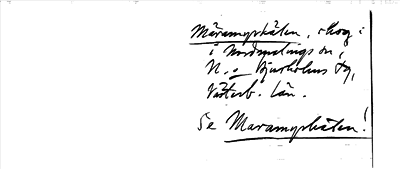 Märamyrkälen, skog i
i Nordmalings sn,
N. o. Bjurholms tg,
Västerb. län.
Se Maramyrkälen!